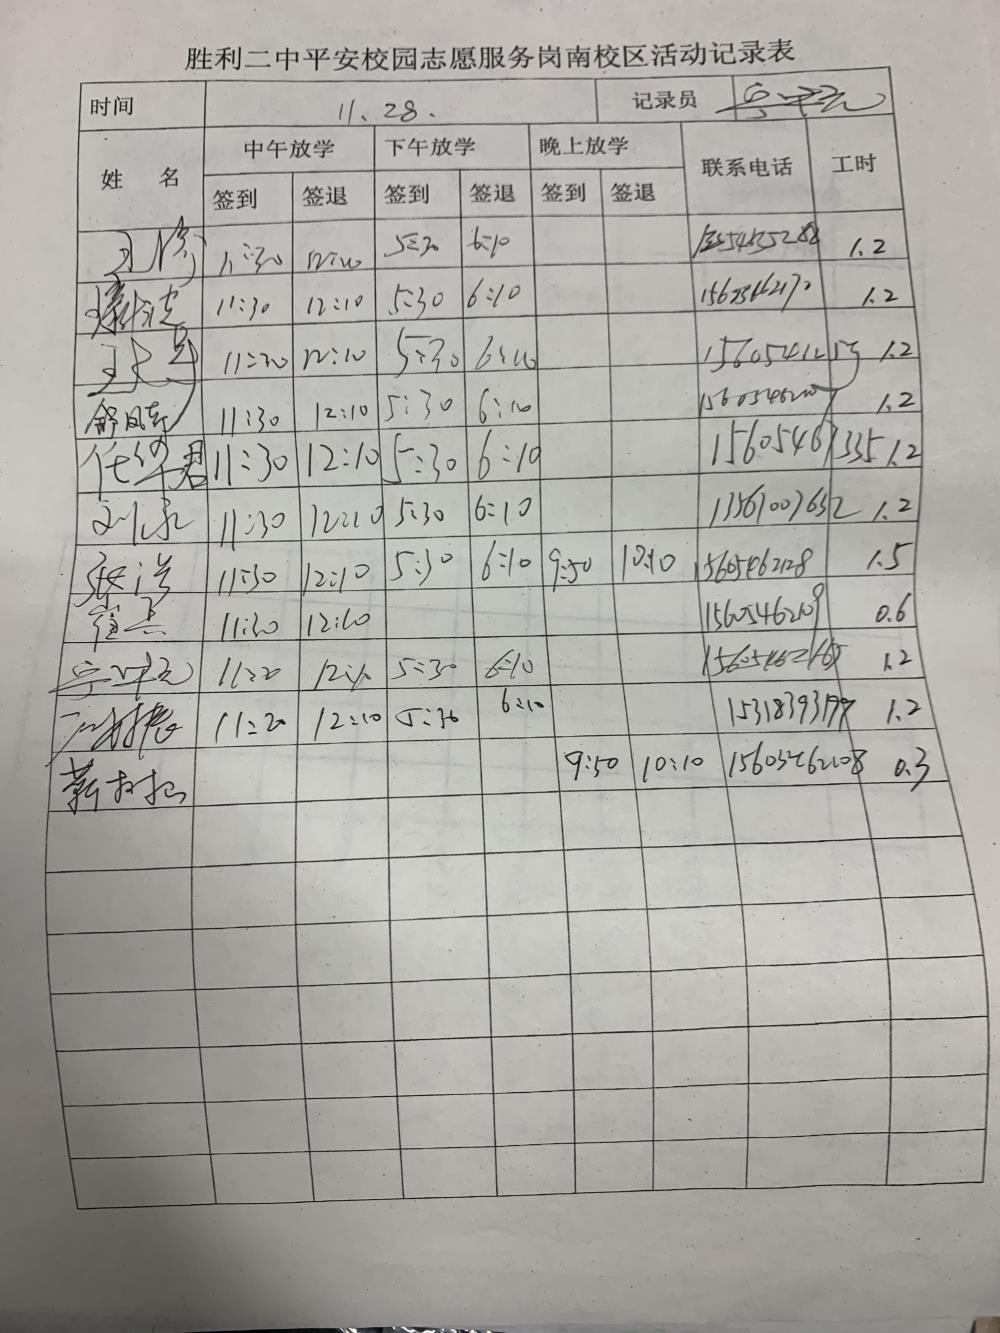 胜利二中平安校园志愿服务岗南校区活动记录表
时间 11.28. 记录员
姓 名 中午放学 下午放学 晚上放学 联系电话 工时
签到 签退 签到 签退 签到 签退
11:30 12:10 5:30 6:10 1.2
11:30 12:10 5:30 6:10 15605462172 1.2
11:30 12:10 5:30 6:10 1.2
舒凤东 11:30 12:10 5:30 6:10 1.2
任翠君 11:30 12:10 5:30 6:10 15605467335 1.2
刘永 11:30 12:10 5:30 6:10 13561007652 1.2
张洪 11:30 12:10 5:30 6:10 9:50 10:10 15605462128 1.5
11:30 12:10 15605462109 0.6
11:20 12:10 5:30 6:10 15605462165 1.2
11:20 12:10 5:30 6:10 1.2
9:50 10:10 15605462108 0.3